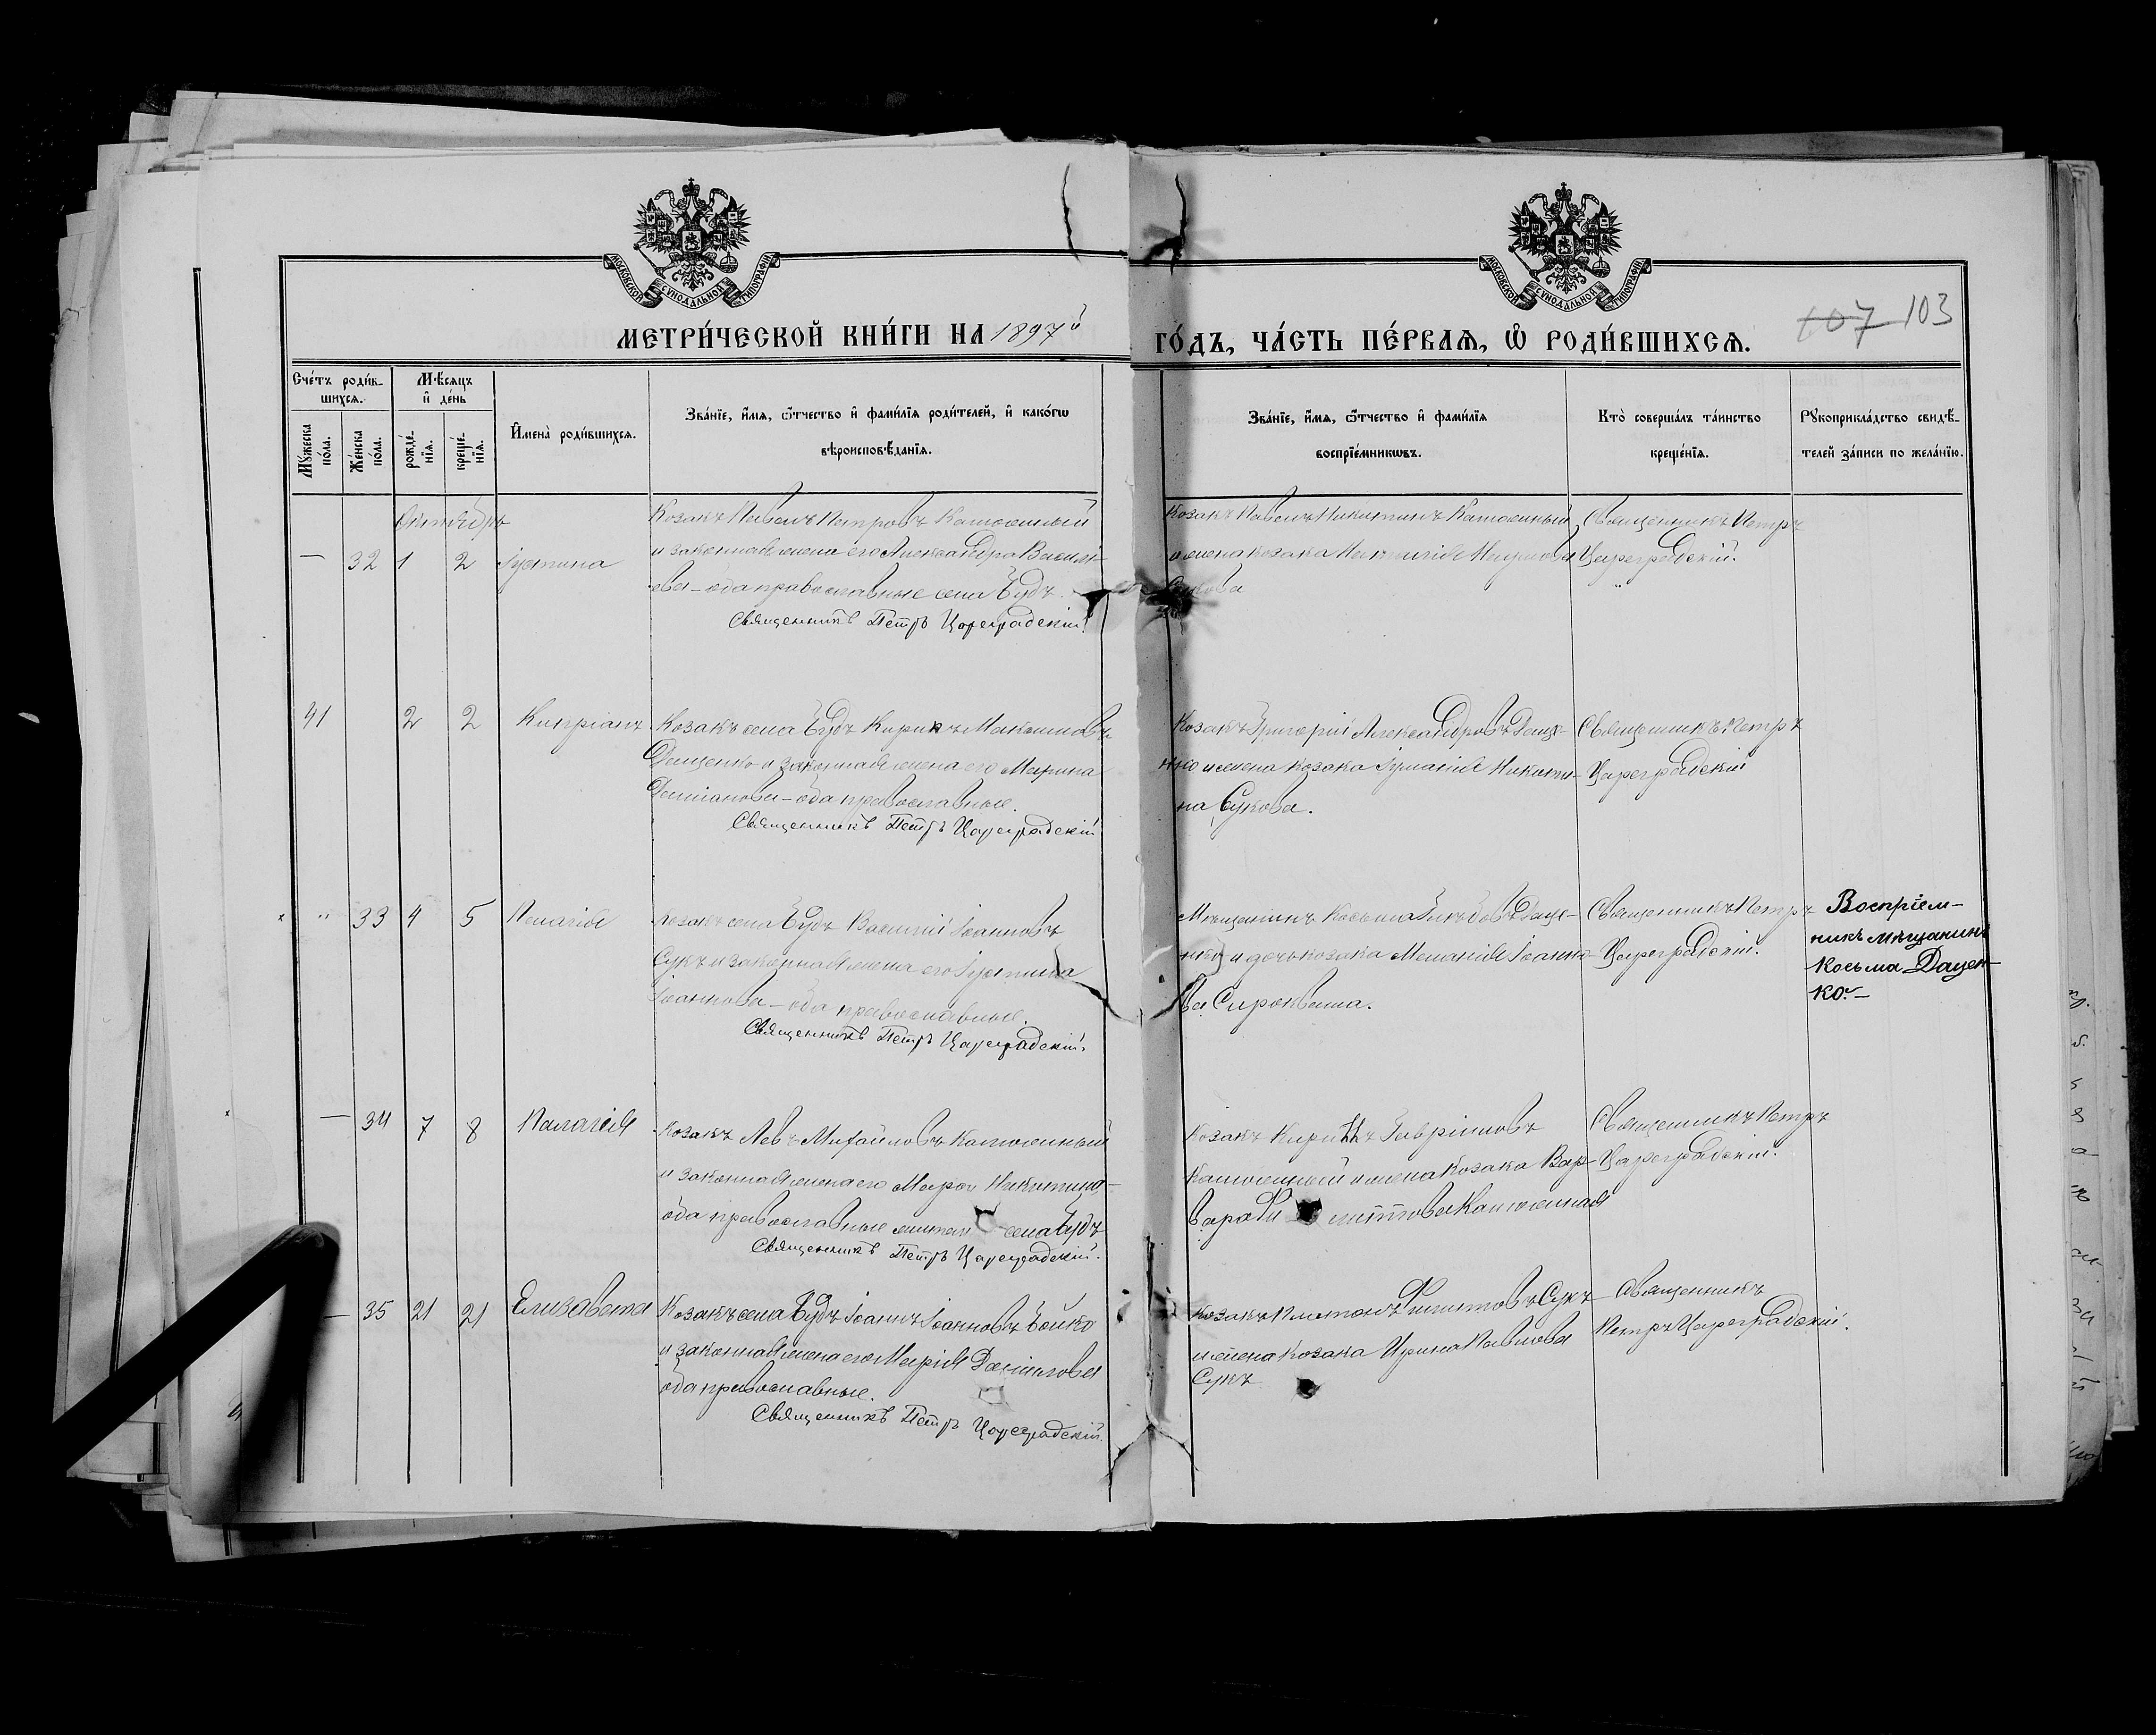 МОСКОВСКОЙ СѴНОДАЛЬНОЙ ТИПОГРАФІИ
МОСКОВСКОЙ СѴНОДАЛЬНОЙ ТИПОГРАФІИ
МЕТРИ́ЧЕСКОЙ КНИ́ГИ НА 1897й
ГО́ДЪ, ЧА́СТЬ ПЕ́РВАѦ, Ѡ҆ РОДИ́ВШИХСѦ.
107 103
Сче́тъ роди́в-
шихсѧ.
Мꙋжеска по́ла.
Же́нска по́ла.
Мѣ́сѧцъ
и҆ де́нь
рожде́-
нїѧ.
креще́-
нїѧ.
И҆мена̀ роди́вшихсѧ.
Зва́нїе, и҆́мѧ, ѻ҆́тчество и҆ фами́лїѧ роди́телей, и҆ како́гѡ
вѣроисповѣ́данїѧ.
Зва́нїе, и҆́мѧ, ѻ҆́тчество и҆ фами́лїѧ
воспрїе́мникѡвъ.
Кто̀ соверша́лъ та́инство
креще́нїѧ.
Рꙋкоприкла́дство свидѣ́-
телей за́писи по жела́нїю.
Октябрь
— 32 1 2 Іустина
Козакъ Павелъ Петровъ Катюшный
и законная жена его Александра Василь-
ева – оба православные села Будъ.
Священникъ Петръ Цареградскій.
Козакъ Павелъ Никитинъ Катюшный
и жена козака
Священникъ Петръ
Цареградскій.
41 2 2 Кипріанъ
Козакъ села Будъ Кирикъ Максимовъ
Даценко и законная жена его Марина
Даміанова – оба православные.
Священникъ Петръ Цареградскій
Козакъ Григорій Александровъ Даце-
нко и жена козака Іуліанія Никити-
на Сукова.
Священникъ Петръ
Цареградскій
" 33 4 5 Пелагія
козакъ села Будъ Василій Іоанновъ
Сукъ и законная жена его Іустина
Іоаннова – оба православные.
Священникъ Петръ Цареградскій.
Мѣщанинъ Косьма Даце-
нко и дочь козака Меланія Іоанно-
ва Сирокваша.
Священникъ Петръ
Цареградскій.
Воспріем-
никъ мѣщанинъ
Косьма Дацен-
ко. –
— 34 7 8 Палагія
Козакъ Левъ Михайловъ Катюшный
и законная жена его Марѳа Никитина,
оба православные села Будъ
Священникъ Петръ Цареградскій.
Козакъ Гавріиловъ
Катюшный и жена козака Вар-
вара Катюшная
Священникъ Петръ
Цареградскій.
— 35 21 21 Елизавета
Козакъ села Будъ Іоаннъ Іоанновъ Бойко
и законная жена его Марія Даніилова
оба православные.
Священникъ Петръ Цареградскій.
козакъ Платонъ Филиповъ Сукъ
и жена козака Ирина Павлова
Сукъ
Священникъ
Петръ Цареградскій.